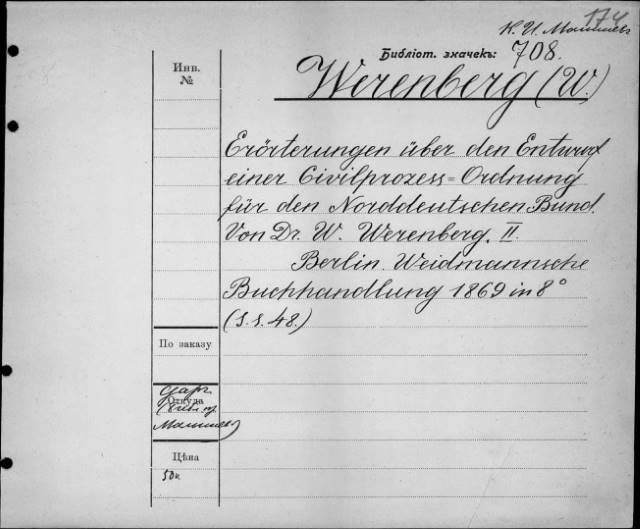 174
Н. И. Малышев
Библіот. значекъ: 708.
Werenberg (W.)
Инв.
№
Erörterungen über den Entwurf
einer Civilprozess=Ordnung
für den Norddeutschen Bund.
Von Dr. W. Werenberg. II.
Berlin. Weidmannsche
Buchhandlung 1869 in 8°
(S.S. 48.)
По заказу
Откуда
Цѣна
50к